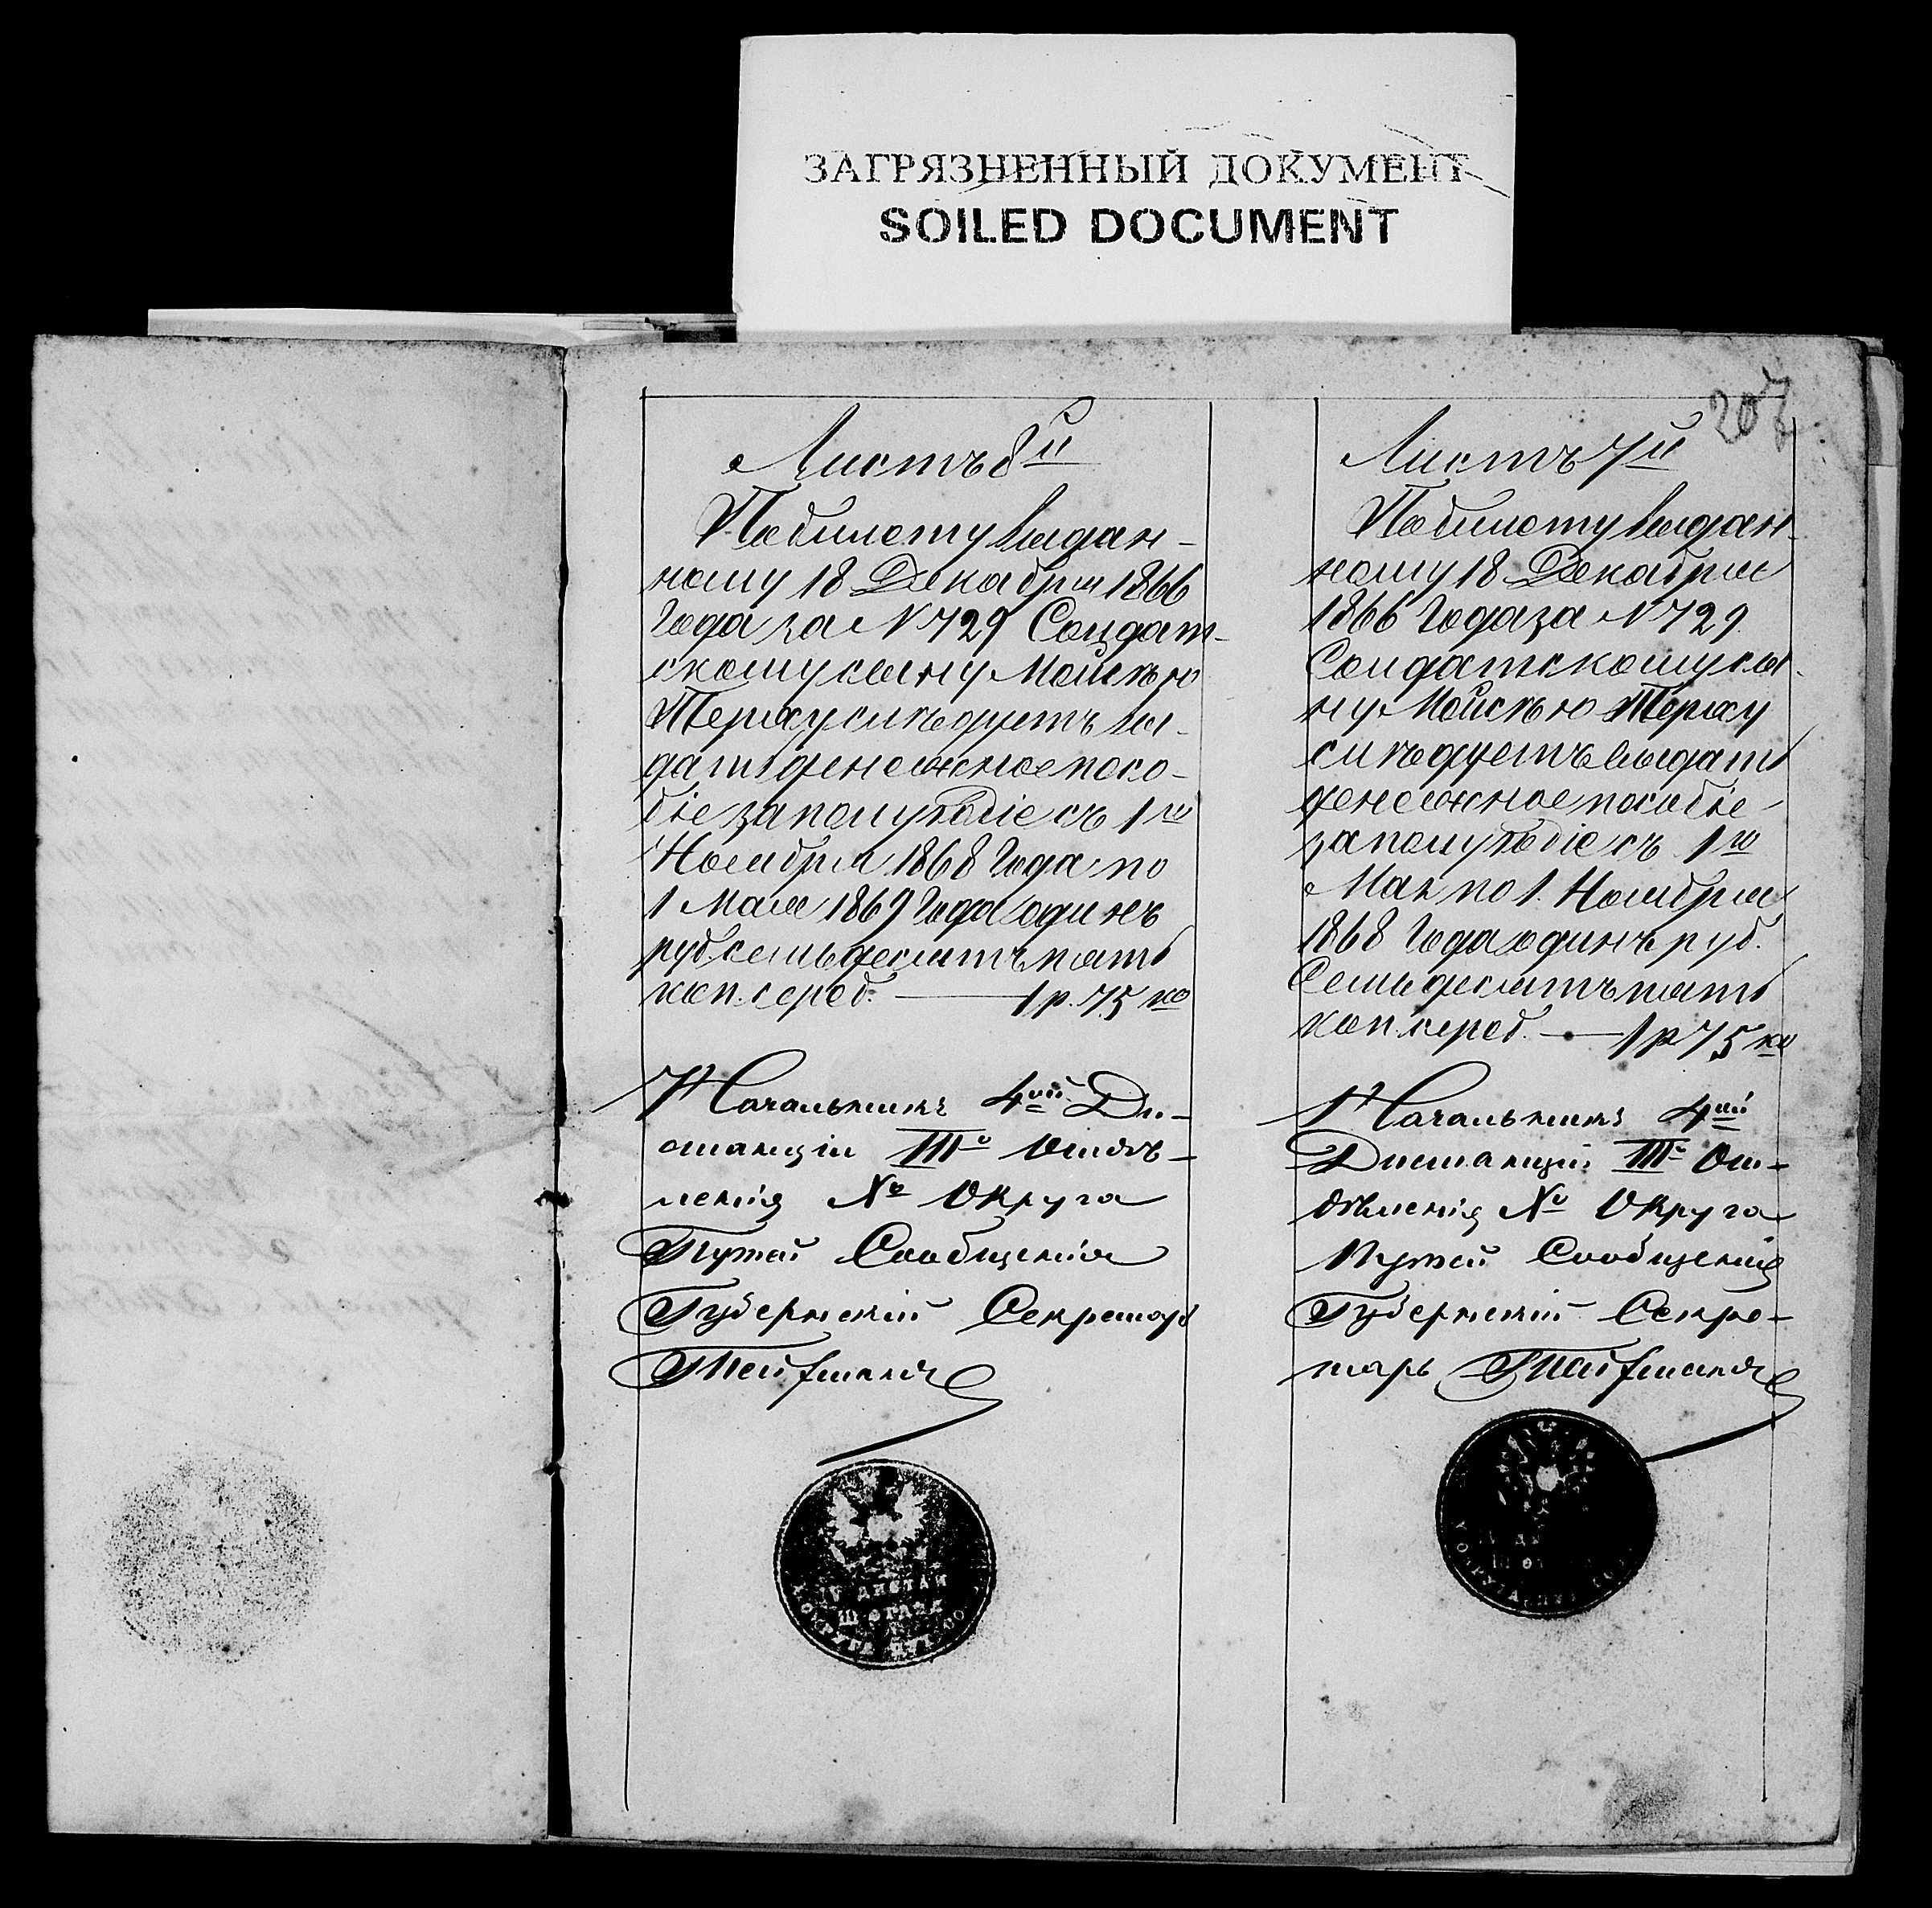 ЗАГРЯЗНЕННЫЙ ДОКУМЕНТ
SOILED DOCUMENT
207
Листъ 8й
По билету выдан-
ному 18 Декабря 1866
Года за N 729 Солдат-
скому сыну Мойсѣю
слѣдуетъ вы-
дать денежное посо-
біе за полугодіе съ 1го
Ноября 1868 Года по
1 Мая 1869 Года одинъ
руб. семьдесятъ пять
коп. сереб. — 1 р. 75 ко
Начальникъ 4ой Ди-
станціи III Отдѣ-
ленія Округа
Путей Сообщенія
Губернскій Секретарь
Листъ 7й
По билету выдан-
ному 18 Декабря
1866 Года за N 729
Солдатскому сы-
ну Мойсѣю
слѣдуетъ выдать
денежное пособіе
за полугодіе съ 1го
Мая по 1 Ноября
1868 Года одинъ руб.
Семьдесятъ пять
коп. сереб. — 1 р 75 ко
Начальникъ 4ой
Дистанціи III От-
дѣленія Округа
Путей Сообщенія
Губернскій Секре-
тарь
IV ДИСТАН
III ОТДѢЛ
ОКРУГА ПУТ. СО
ОКРУГА ПУТ. СО